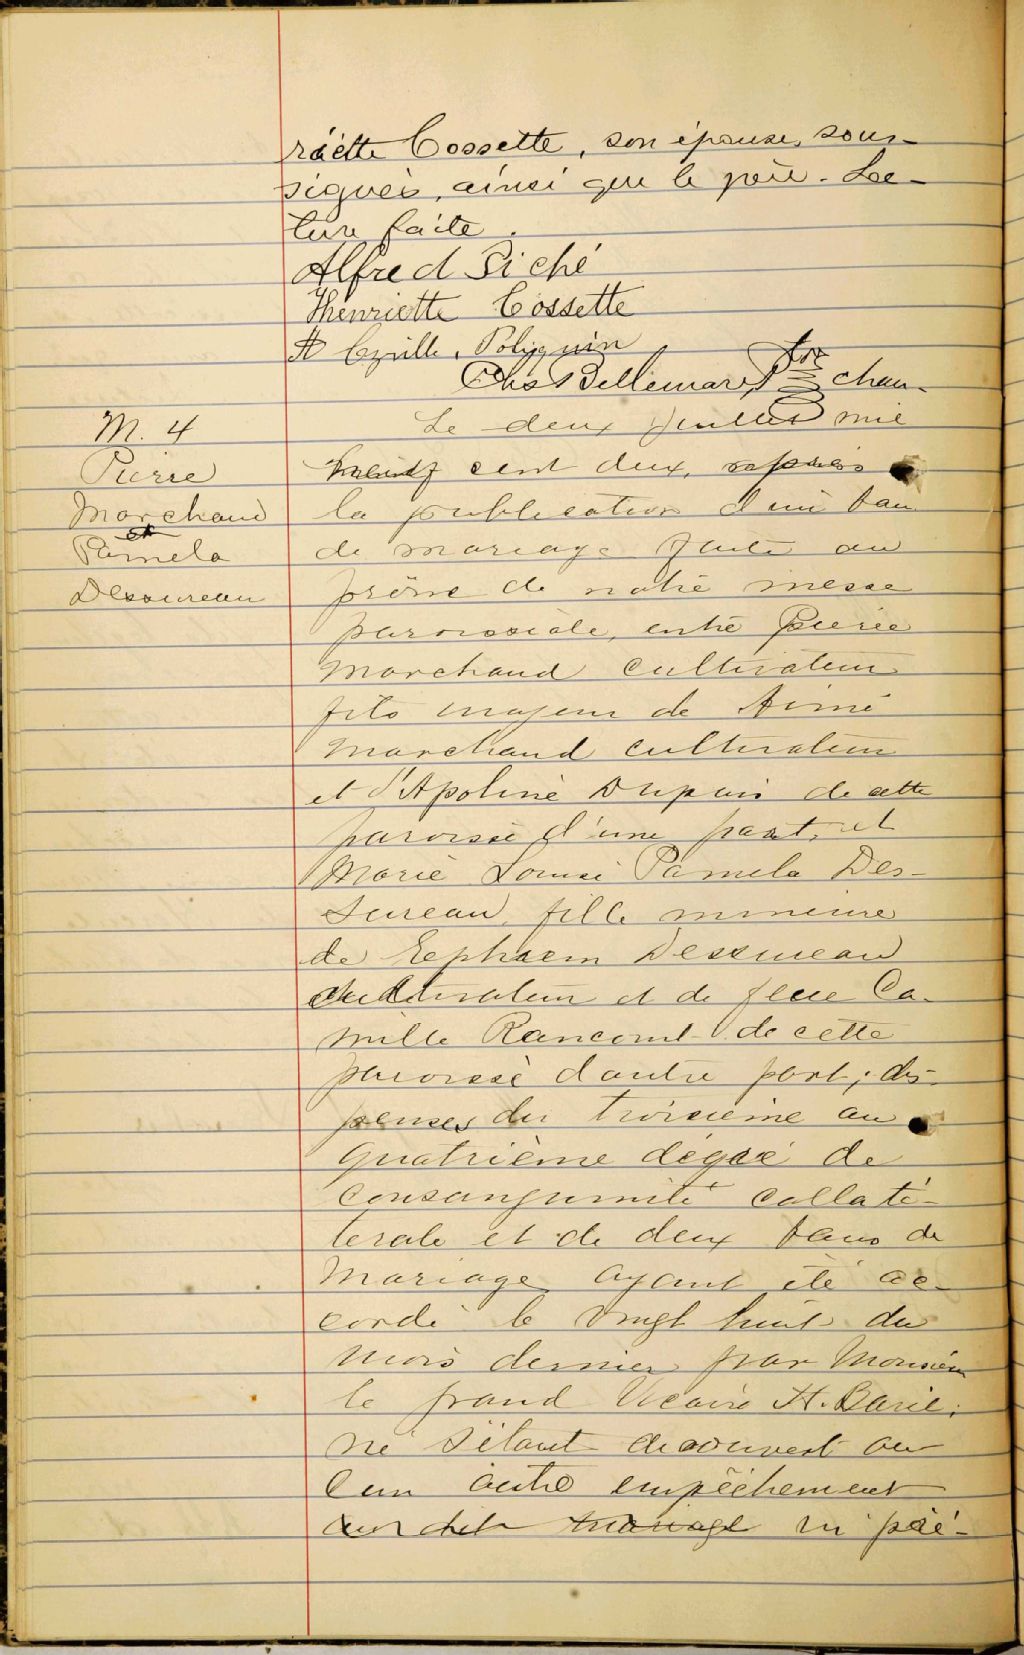 riette Cossette, son épouse, sous-
signés, ainsi que le père. Lec-
ture faite.
Alfred Siché
Henriette Cossette
H Cyrille, Poliquin
Chs Bellemare, Ptre chan.
M. 4
Pierre
Marchand
et
Pamela
Dessureau
Le deux Juillet mil
neuf cent deux, après
la publication d'un ban
de mariage faite au
prône de notre messe
paroissiale, entre Pierre
Marchand cultivateur
fils majeur de Aimé
Marchand cultivateur
et d'Apoline Dupuis de cette
paroisse d'une part, et
Marie Louise Pamela Des-
sureau, fille mineure
de Ephrem Dessureau
cultivateur et de feue Ca-
mille Rancourt de cette
paroisse d'autre part; dis-
penses du troisième au
quatrième dégré de
consanguinité collaté-
térale et de deux bans de
Mariage ayant été ac-
cordé le vingt huit du
mois dernier par Monsieur
le grand Vicaire H. Baril;
ne s'étant découvert au-
cun autre empêchement
au dit mariage ni pré-